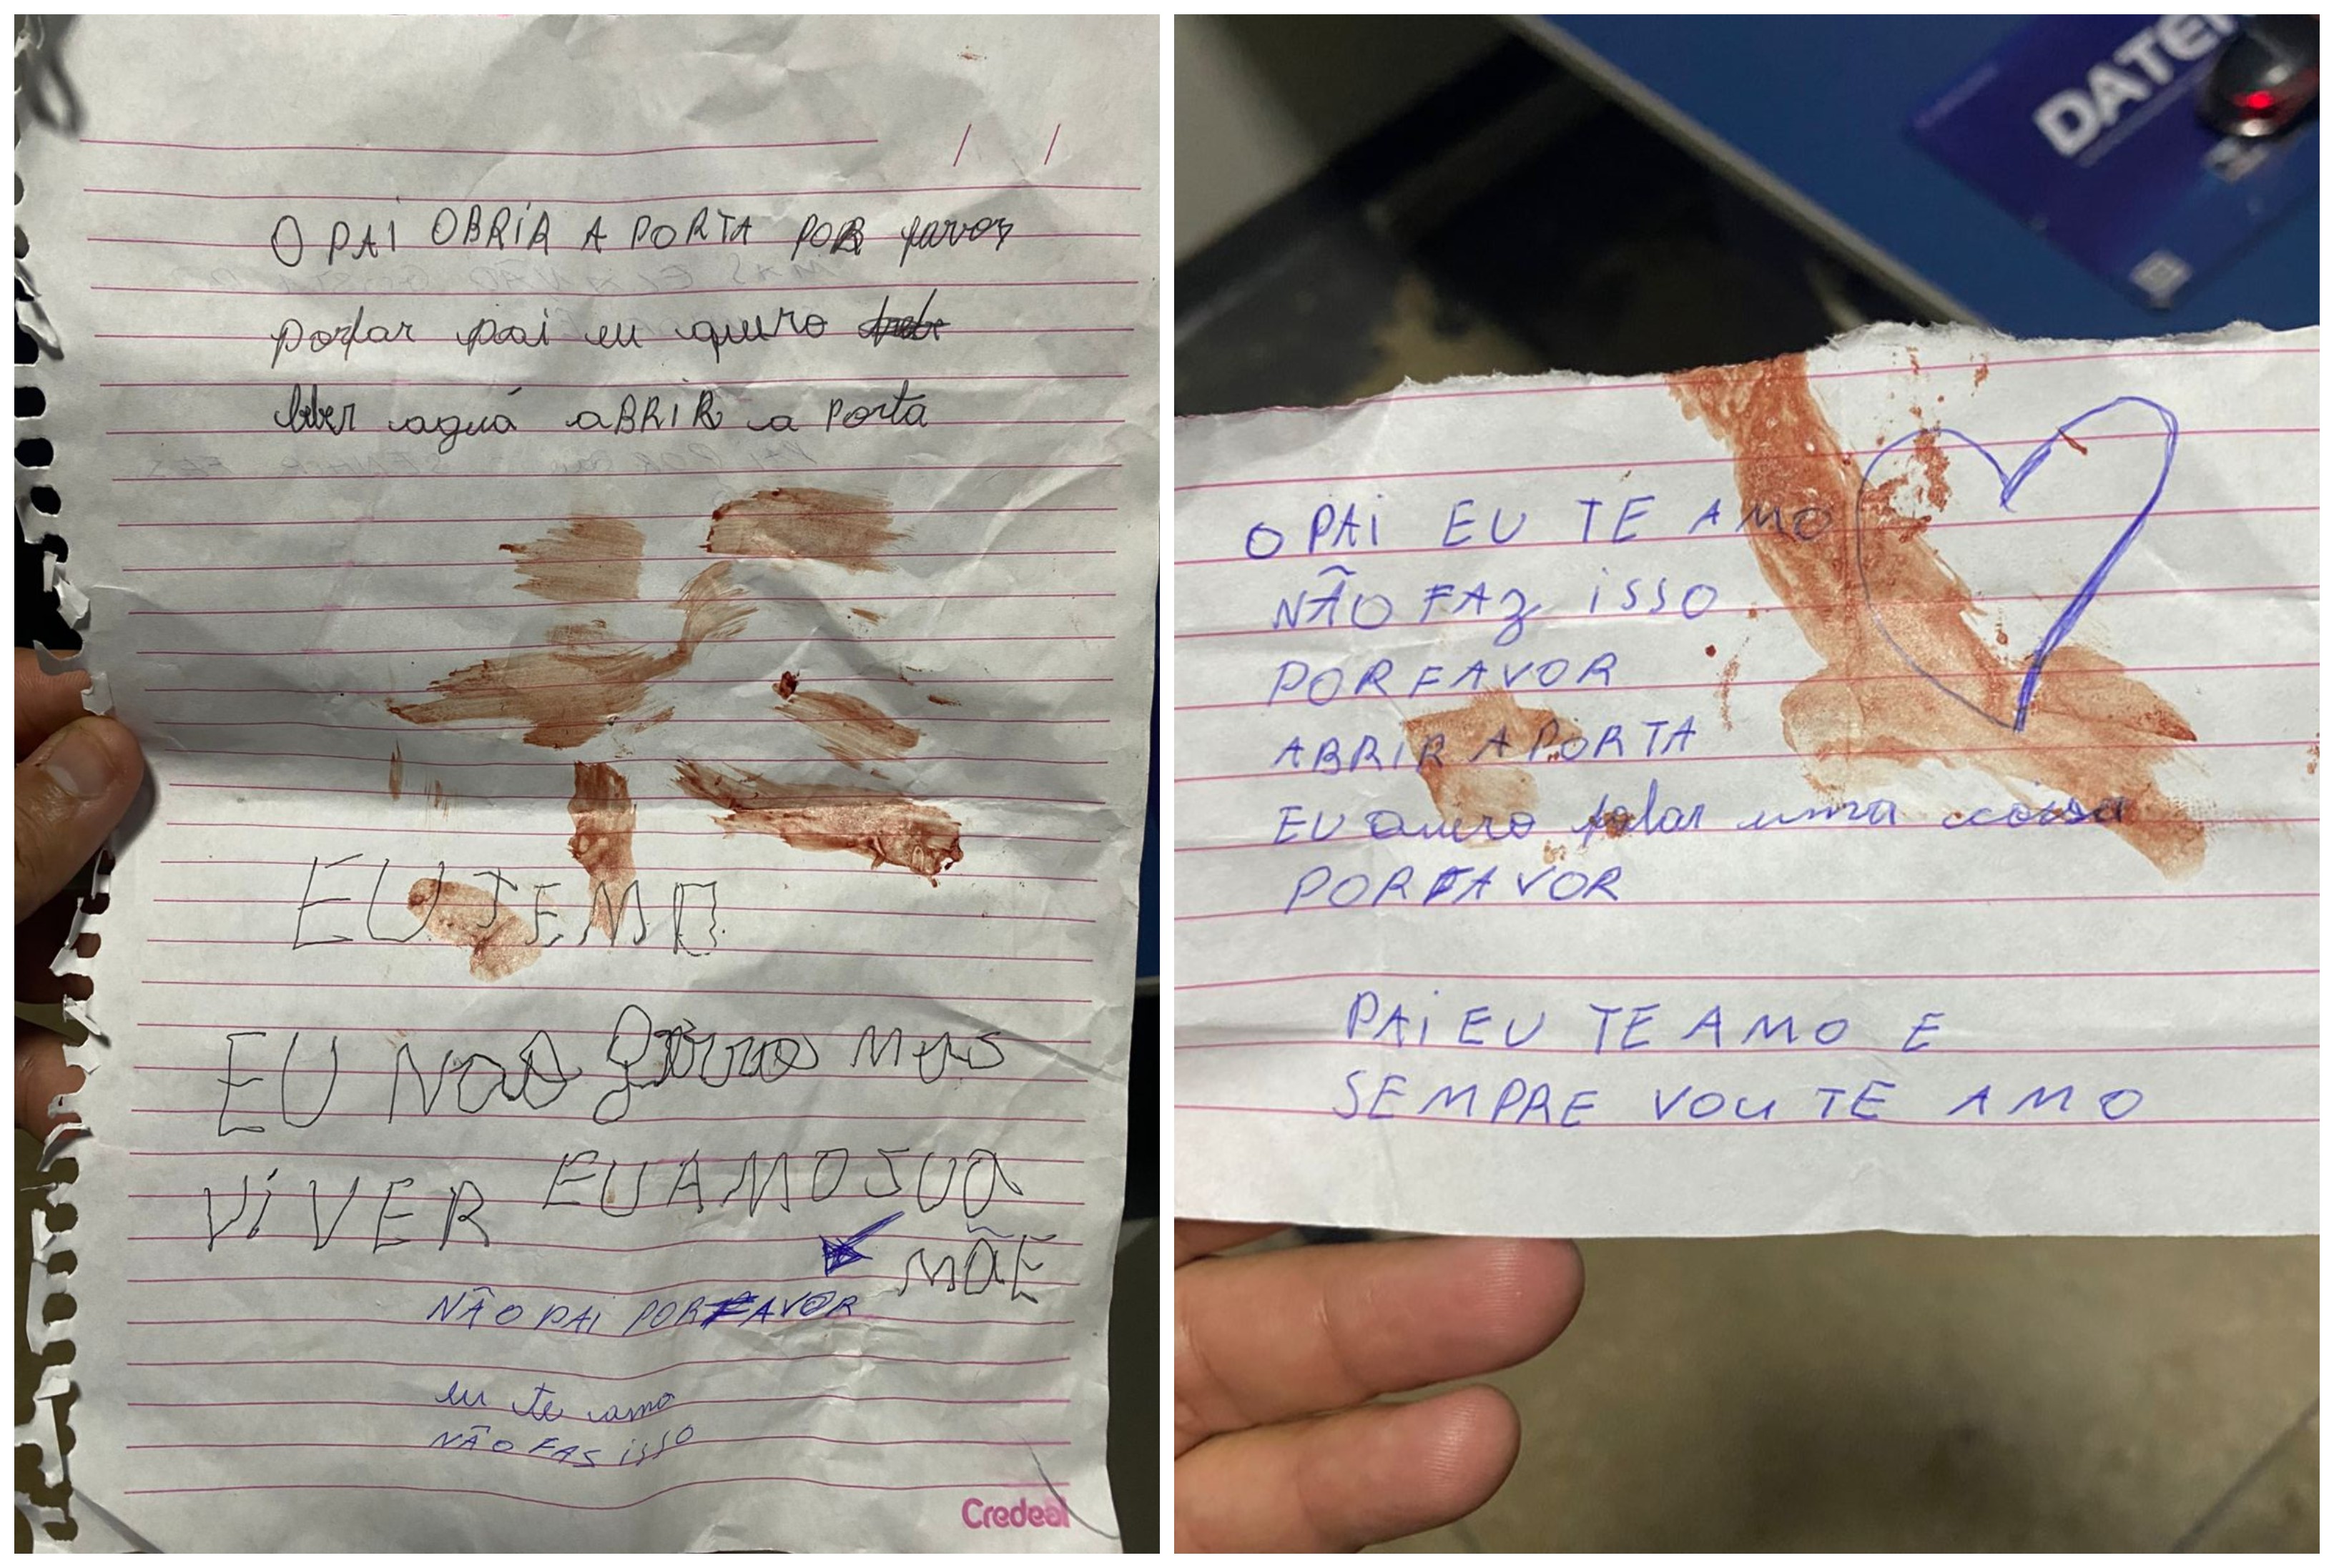 O PAI OBRIR A PORTA POR favor
porfar pai eu quero
beber aguá aBRIR a Porta
EU TEMO
EU NaO Quero Mas
ViVER EU AMO SUA
MÃE
NÃO PAI PORFAVOR
eu te amo
NÃO FAS isso
Credeal
DATE
O PAI EU TE AMO
NÃO FAZ isso
PORFAVOR
ABRIR A PORTA
EU Quero falar uma coisa
PORFAVOR
PAI EU TE AMO E
SEMPRE VOU TE AMO